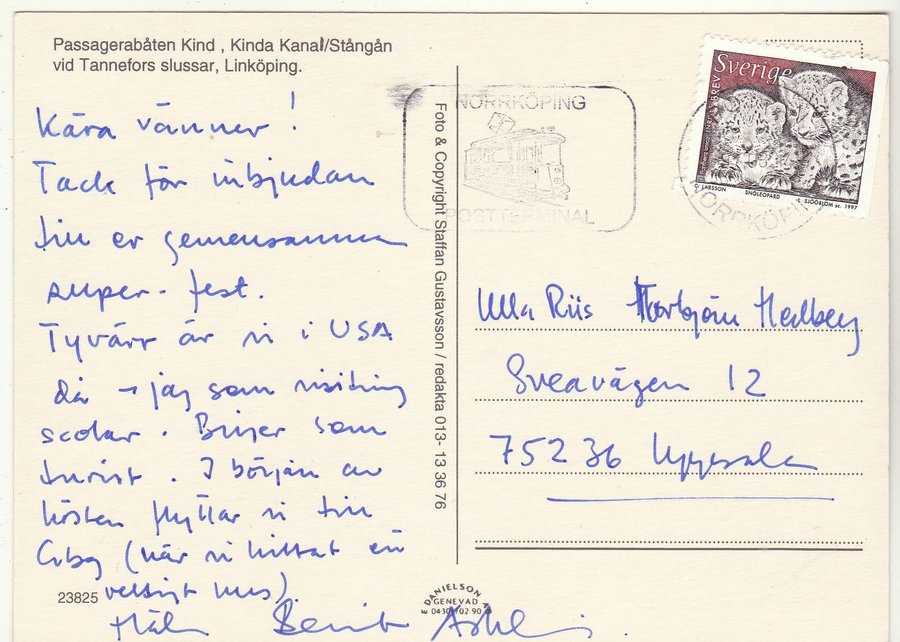 Passagerabåten Kind , Kinda Kanal/Stångån
vid Tannefors slussar, Linköping.
Kära vänner !
Tack för inbjudan
till er gemensamma
super- fest.
Tyvärr är vi i USA
då → jag som visiting
scolar. som
turist. I början av
hösten flyttar vi till
(när vi hittat en
vettigt hus).
23825
Foto & Copyright Staffan Gustavsson / redakta 013- 13 36 76
E DANIELSON AB
GENEVAD
0430/702 90
NORRKÖPING
POSTTERMINAL
NORRKÖPING
Sverige
BREV
C LARSSON SNÖLEOPARD L SJÖÖBLOM sc. 1997
Ulla Riis Thorbjörn Hedberg
Sveavägen 12
752 36 Uppsala